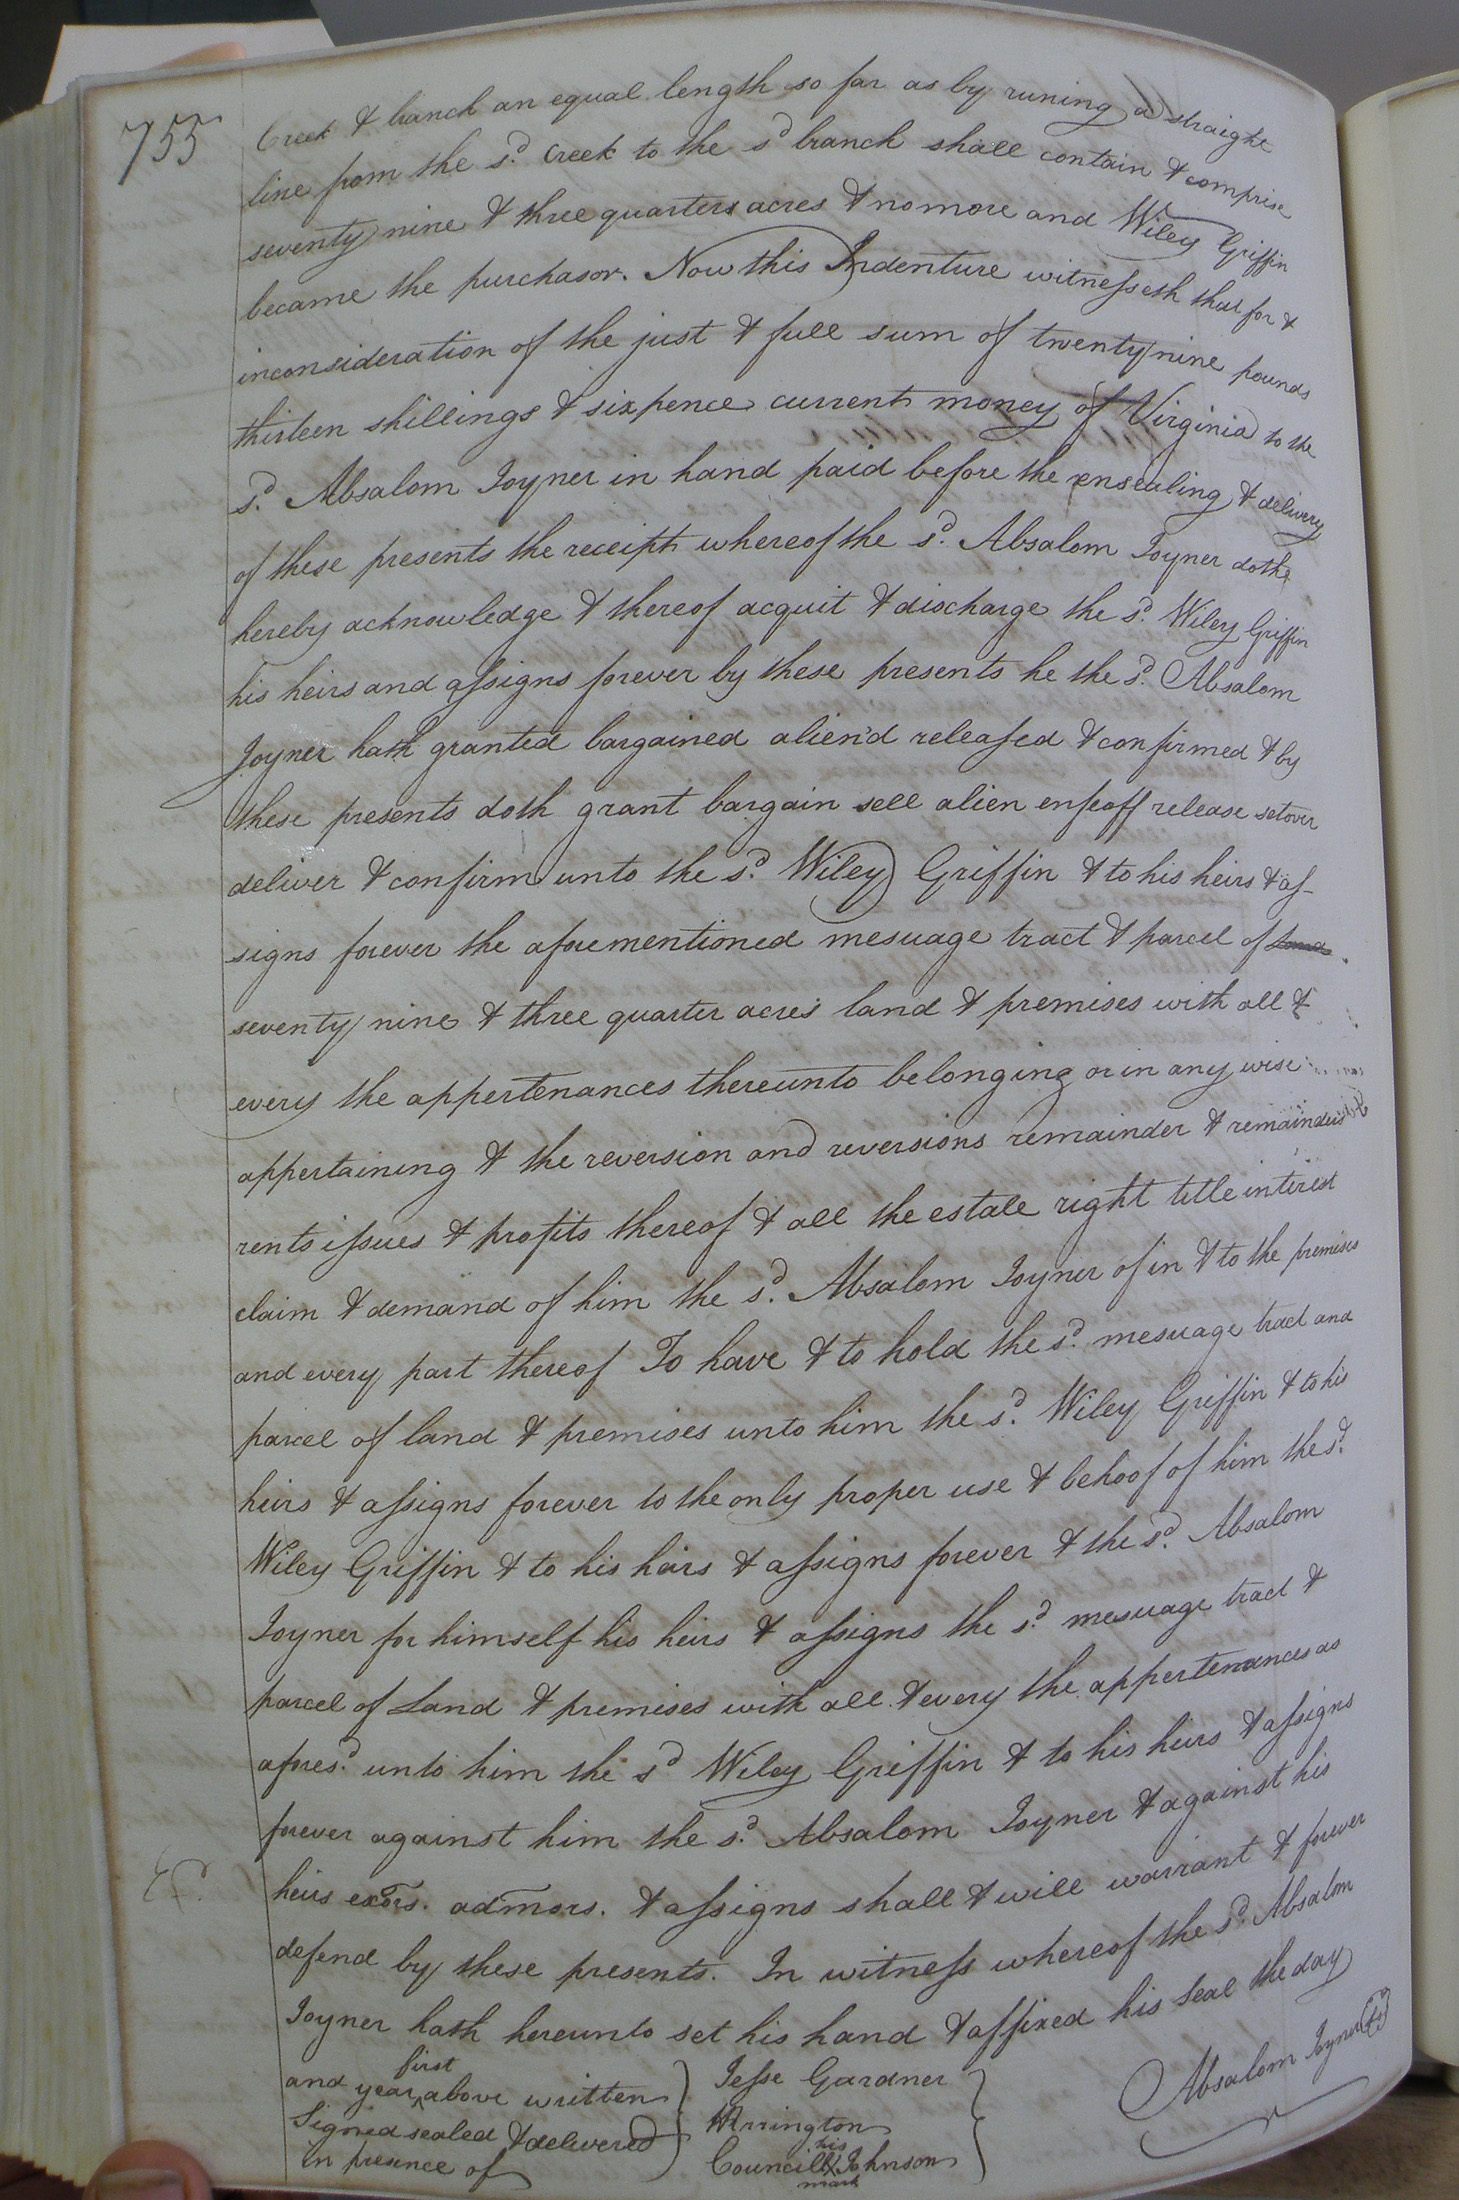 755
Creek & branch an equal length so far as by runing a straight
line from the sd. Creek to the sd branch shall contain & comprise
seventy nine & three quarters acres & no more and Wiley Griffin
became the purchasor. Now this Indenture witnesseth that for &
inconsideration of the just & full sum of twenty nine pounds
thirteen shillings & sixpence current money of Virginia to the
sd. Absalom Joyner in hand paid before the ensealing & delivery
of these presents the receipt whereof the sd. Absalom Joyner doth
hereby acknowledge & thereof acquit & discharge the sd. Wiley Griffin
his heirs and assigns forever by these presents he the sd. Absalom
Joyner hath granted bargained alien'd released & confirmed & by
these presents doth grant bargain sell alien enfeoff release setover
deliver & confirm unto the sd. Wiley Griffin & to his heirs & as-
signs forever the aforementioned mesuage tract & parcel of land
seventy nine & three quarter acres land & premises with all &
every the appertenances thereunto belonging or in any wise
appertaining & the reversion and reversions remainder & remainders
rents issues & profits thereof & all the estate right title interest
claim & demand of him the sd. Absalom Joyner of in & to the premises
and every part thereof To have & to hold the sd. mesuage tract and
parcel of land & premises unto him the sd. Wiley Griffin & to his
heirs & assigns forever to the only proper use & behoof of him the sd.
Wiley Griffin & to his heirs & assigns forever & the sd. Absalom
Joyner for himself his heirs & assigns the sd. mesuage tract &
parcel of Land & premises with all & every the appertenances as
afores'd unto him the sd Wiley Griffin & to his heirs & assigns
forever against him the sd. Absalom Joyner & against his
heirs exors. admors. & assigns shall & will warrant & forever
defend by these presents. In witness whereof the sd. Absalom
Joyner hath hereunto set his hand & affixed his Seal the day
and year first above written
Signed sealed & delivered
in presence of
Jesse Gardner
Arrington
Councill his X mark Johnson
Absalom Joyner (LS)
Ed.